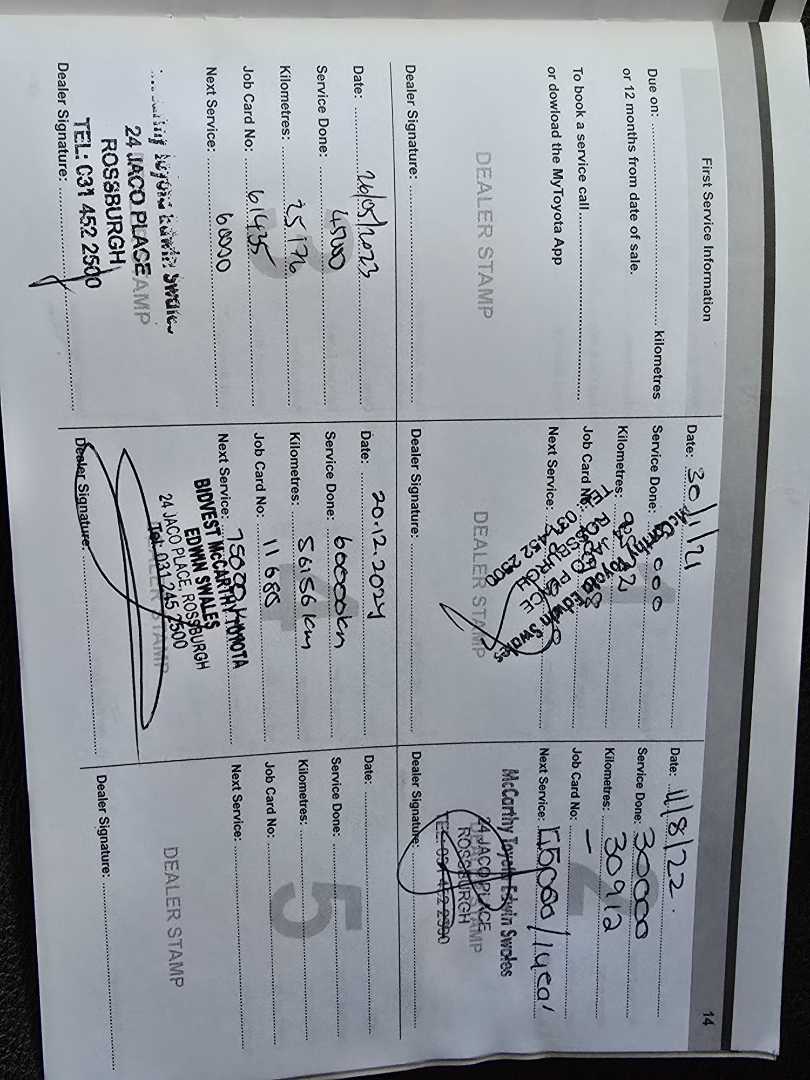 First Service Information
14
Due on: kilometres
or 12 months from date of sale.
To book a service call
or dowload the MyToyota App
DEALER STAMP
Dealer Signature:
Date: 30/11/21
Service Done:
Kilometres:
Job Card No:
Next Service:
McCarthy Toyota Edwin Swales
24 JACO PLACE
ROSSBURGH
TEL: 031 452 2500
DEALER STAMP
Dealer Signature:
Date: 11/8/22.
Service Done: 30000
Kilometres: 30912
Job Card No: –
Next Service:
2
McCarthy Toyota Edwin Swales
24 JACO PLACE
ROSSBURGH
TEL: 031 452 2500
Dealer Signature:
Date: 26/05/2023
Service Done:
Kilometres:
Job Card No: 61435
Next Service: 60000
3
24 JACO PLACE
ROSSBURGH
TEL: 031 452 2500
Dealer Signature:
Date: 20.12.2024
Service Done: 60000km
Kilometres: 56156km
Job Card No: 11680
Next Service: 75000
4
BIDVEST McCARTHY TOYOTA
EDWIN SWALES
24 JACO PLACE, ROSSBURGH
Tel: 031 245 2500
DEALER STAMP
Dealer Signature:
Date:
Service Done:
Kilometres:
Job Card No:
Next Service:
5
DEALER STAMP
Dealer Signature: